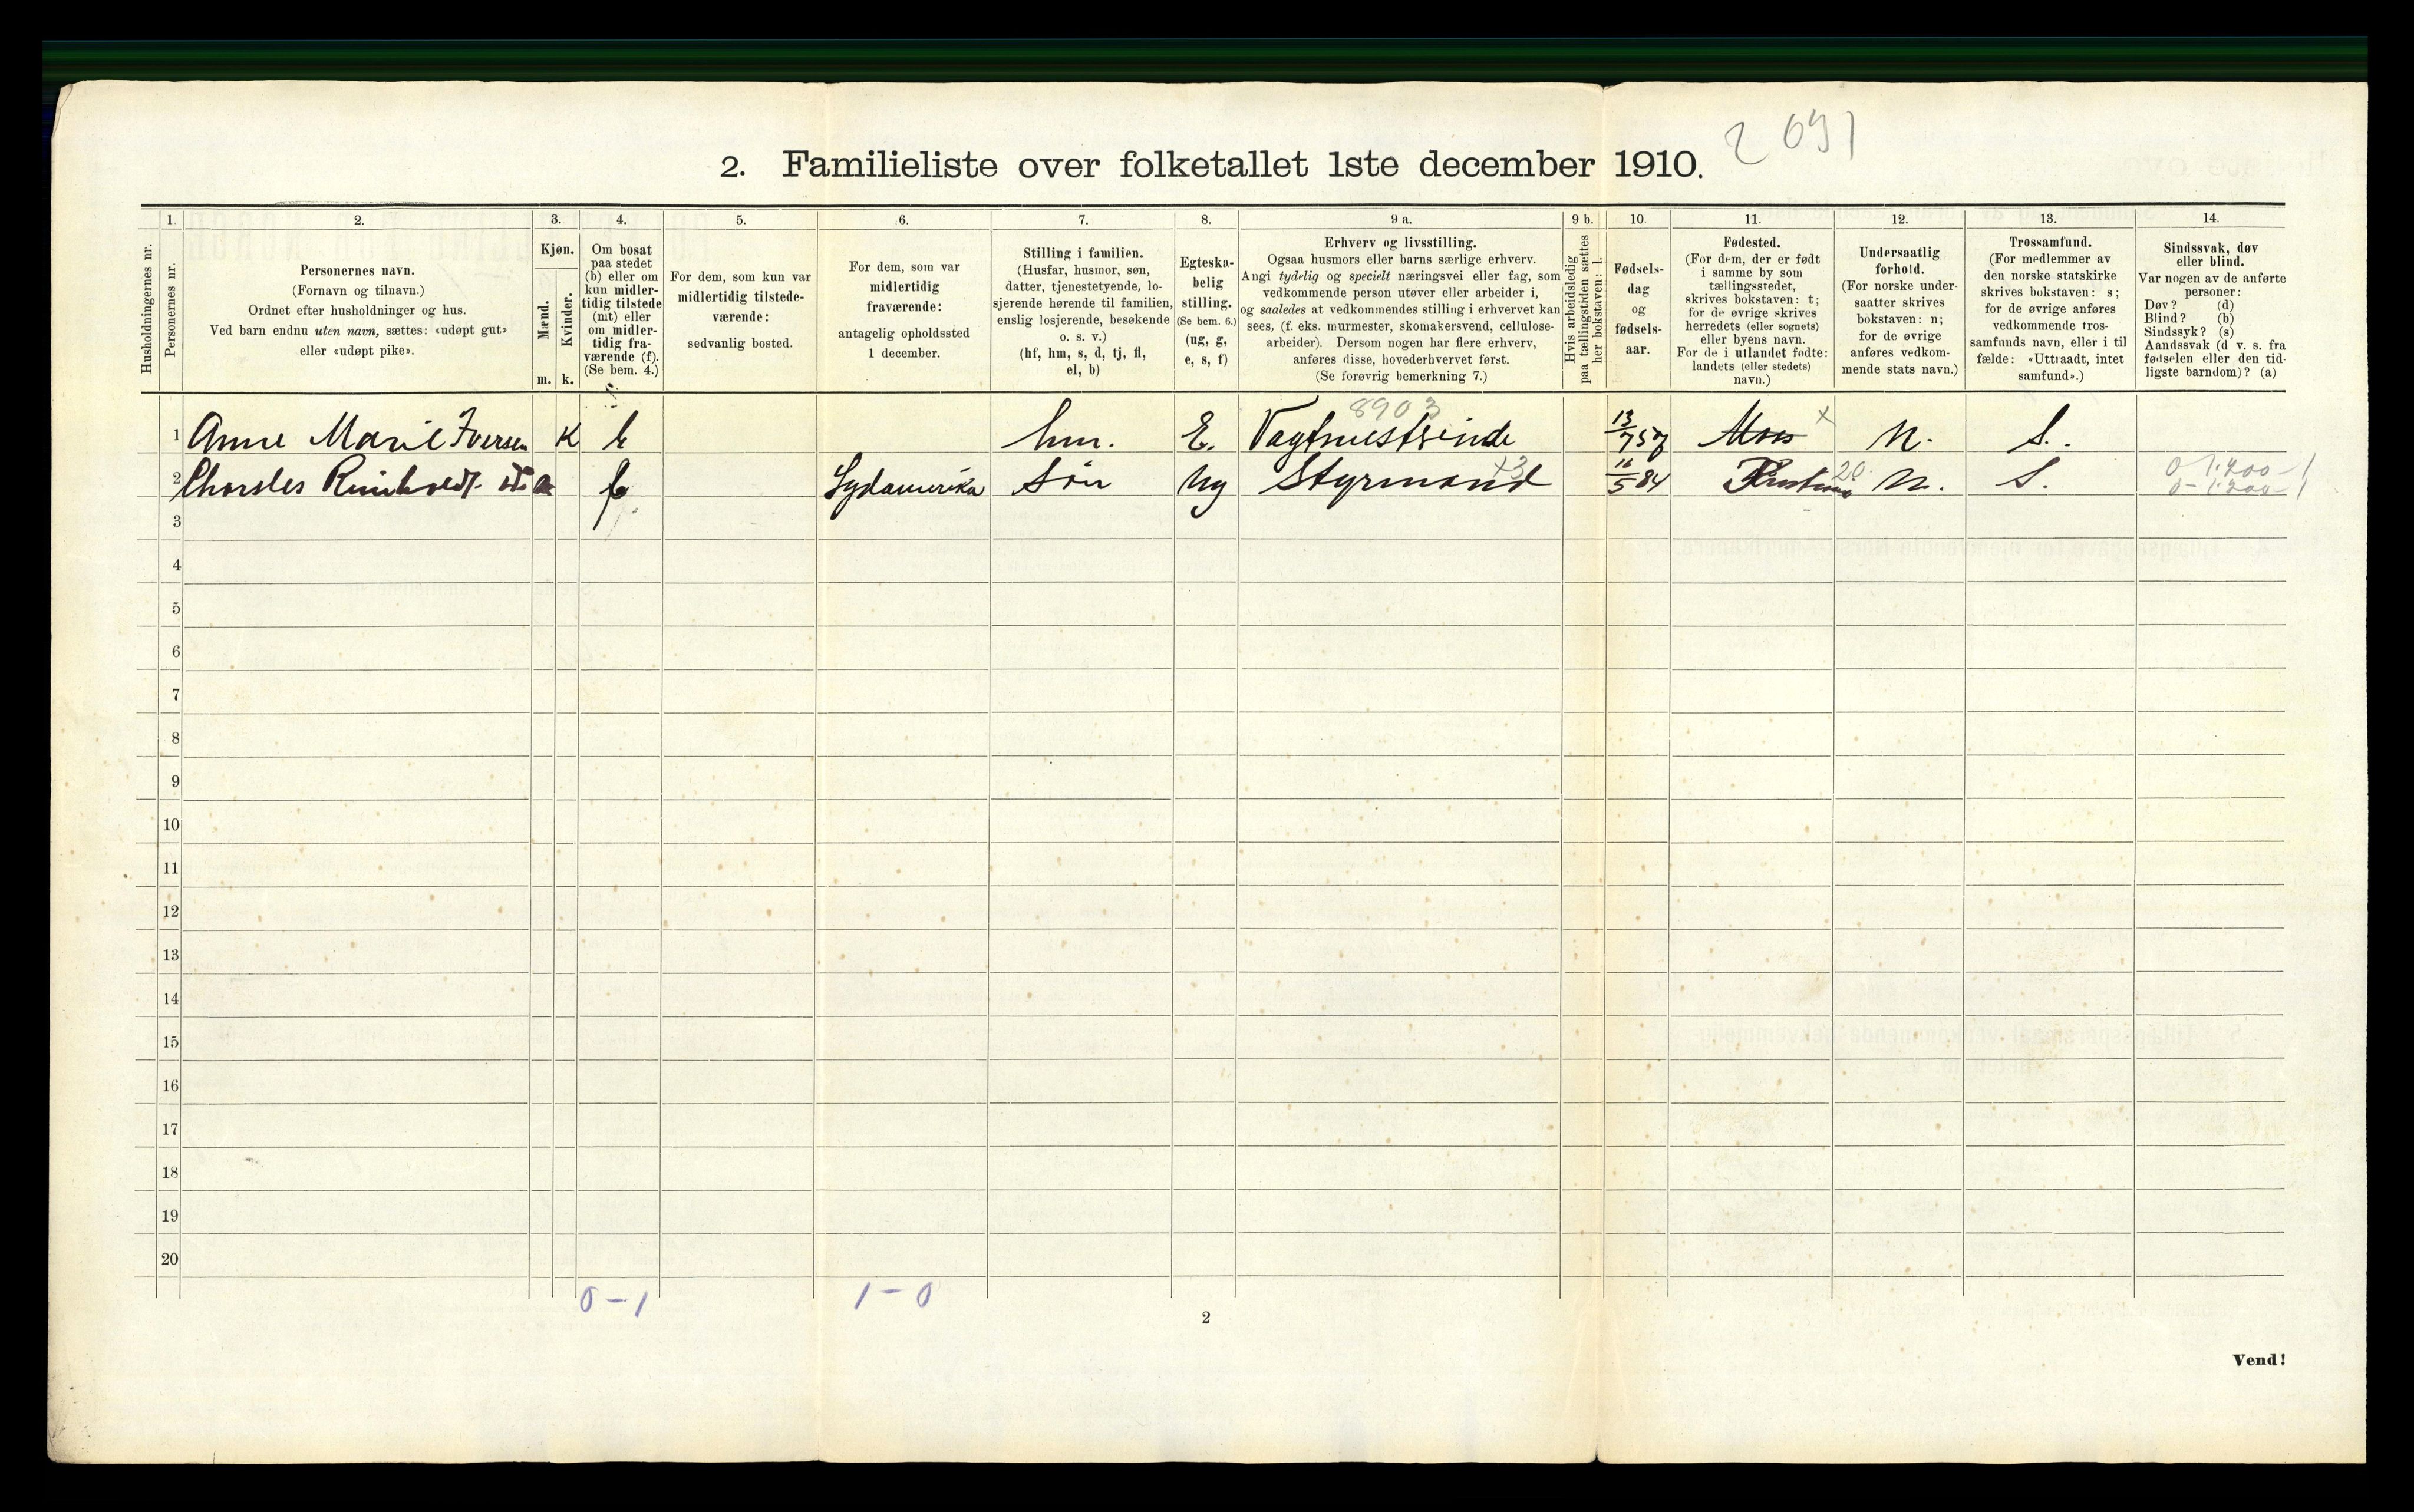 2 091
2. Familieliste over folketallet 1ste december 1910.
1. 2. 3. 4. 5. 6. 7. 8. 9 a. 9 b. 10. 11. 12. 13. 14.
Husholdningernes nr.
Personernes nr.
Personernes navn.
(Fornavn og tilnavn.)
Ordnet efter husholdninger og hus.
Ved barn endnu uten navn, sættes: «udøpt gut»
eller «udøpt pike».
Kjøn.
Mænd.
Kvinder.
m. k.
Om bosat
paa stedet
(b) eller om
kun midler-
tidig tilstede
(mt) eller
om midler-
tidig fra-
værende (f).
(Se bem. 4.)
For dem, som kun var
midlertidig tilstede-
værende:
sedvanlig bosted.
For dem, som var
midlertidig
fraværende:
antagelig opholdssted
1 december.
Stilling i familien.
(Husfar, husmor, søn,
datter, tjenestetyende, lo-
sjerende hørende til familien,
enslig losjerende, besøkende
o. s. v.)
(hf, hm, s, d, tj, fl,
el, b)
Egteska-
belig
stilling.
(Se bem. 6.)
(ug, g,
e, s, f)
Erhverv og livsstilling.
Ogsaa husmors eller barns særlige erhverv.
Angi tydelig og specielt næringsvei eller fag, som
vedkommende person utøver eller arbeider i,
og saaledes at vedkommendes stilling i erhvervet kan
sees, (f. eks. murmester, skomakersvend, cellulose-
arbeider). Dersom nogen har flere erhverv,
anføres disse, hovederhvervet først.
(Se forøvrig bemerkning 7.)
Hvis arbeidsledig
paa tællingstiden sættes
her bokstaven: l.
Fødsels-
dag
og
fødsels-
aar.
Fødested.
(For dem, der er født
i samme by som
tællingsstedet,
skrives bokstaven: t;
for de øvrige skrives
herredets (eller sognets)
eller byens navn.
For de i utlandet fødte:
landets (eller stedets)
navn.)
Undersaatlig
forhold.
(For norske under-
saatter skrives
bokstaven: n;
for de øvrige
anføres vedkom-
mende stats navn.)
Trossamfund.
(For medlemmer av
den norske statskirke
skrives bokstaven: s;
for de øvrige anføres
vedkommende tros-
samfunds navn, eller i til
fælde: «Uttraadt, intet
samfund».)
Sindssvak, døv
eller blind.
Var nogen av de anførte
personer:
Døv? (d)
Blind? (b)
Sindssyk? (s)
Aandssvak (d v. s. fra
fødselen eller den tid-
ligste barndom)? (a)
8903
1 Anne Marie Iversen K b hm. E. 13/7 57 Moss x N. S.
2 Charles Reinholdt f Sydamerika Søn ug Styrmand x3 16/5 84 20 N. S. 0-1.200-1
0-1.200-1
3
4
5
6
7
8
9
10
11
12
13
14
15
16
17
18
19
20
0-1 1-0
2
Vend!